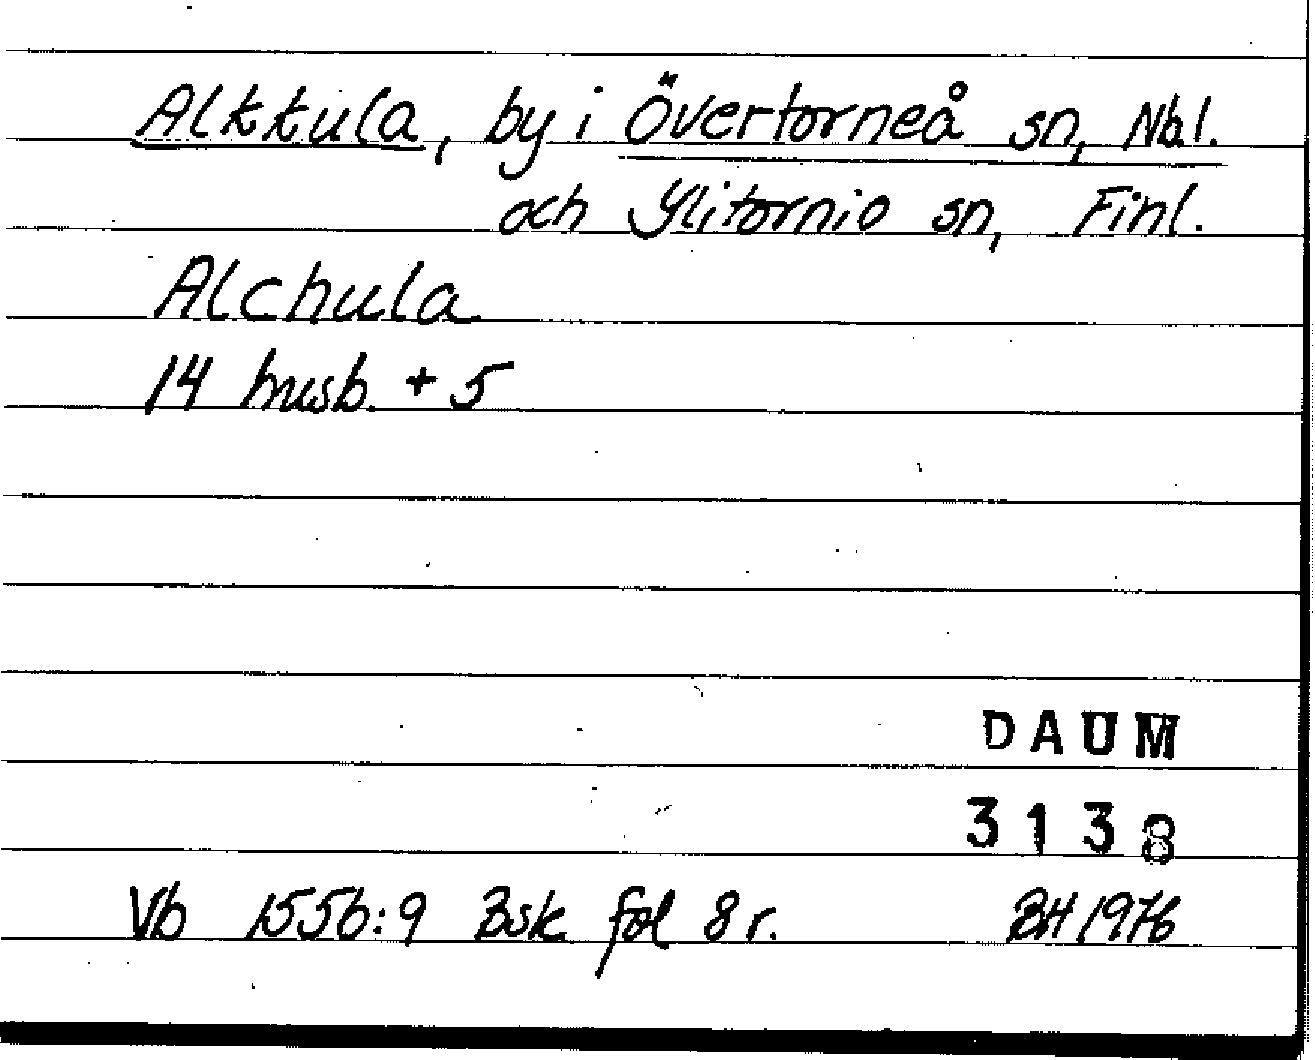 Alkkula, by i Övertorneå sn, Nbl.
och Ylitornio sn, Finl.
Alchula
14 husb. + 5
DAUM
3138
Vb 1556:9 Bsk fol 8 r. BH 1976